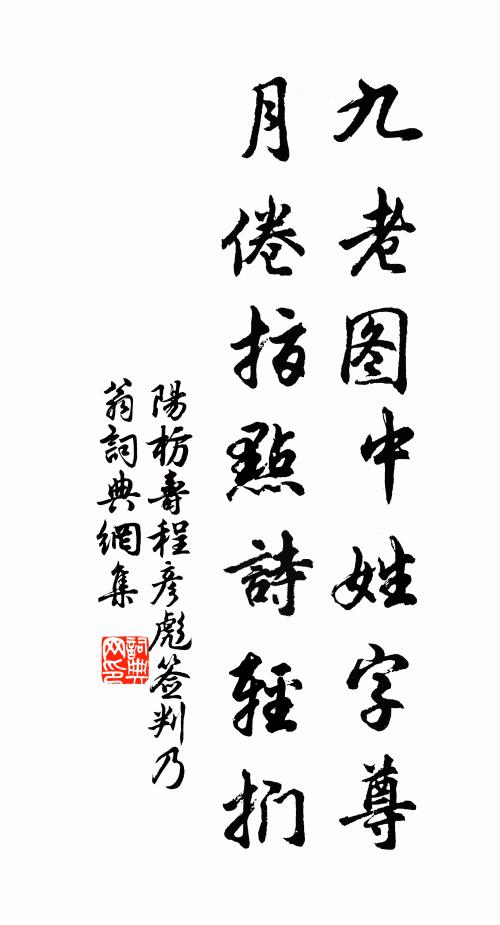 九老图中姓字尊
月倦指點詩輕捫
陽枋壽程彥彪签判乃
翁詞典網集
詞典网印